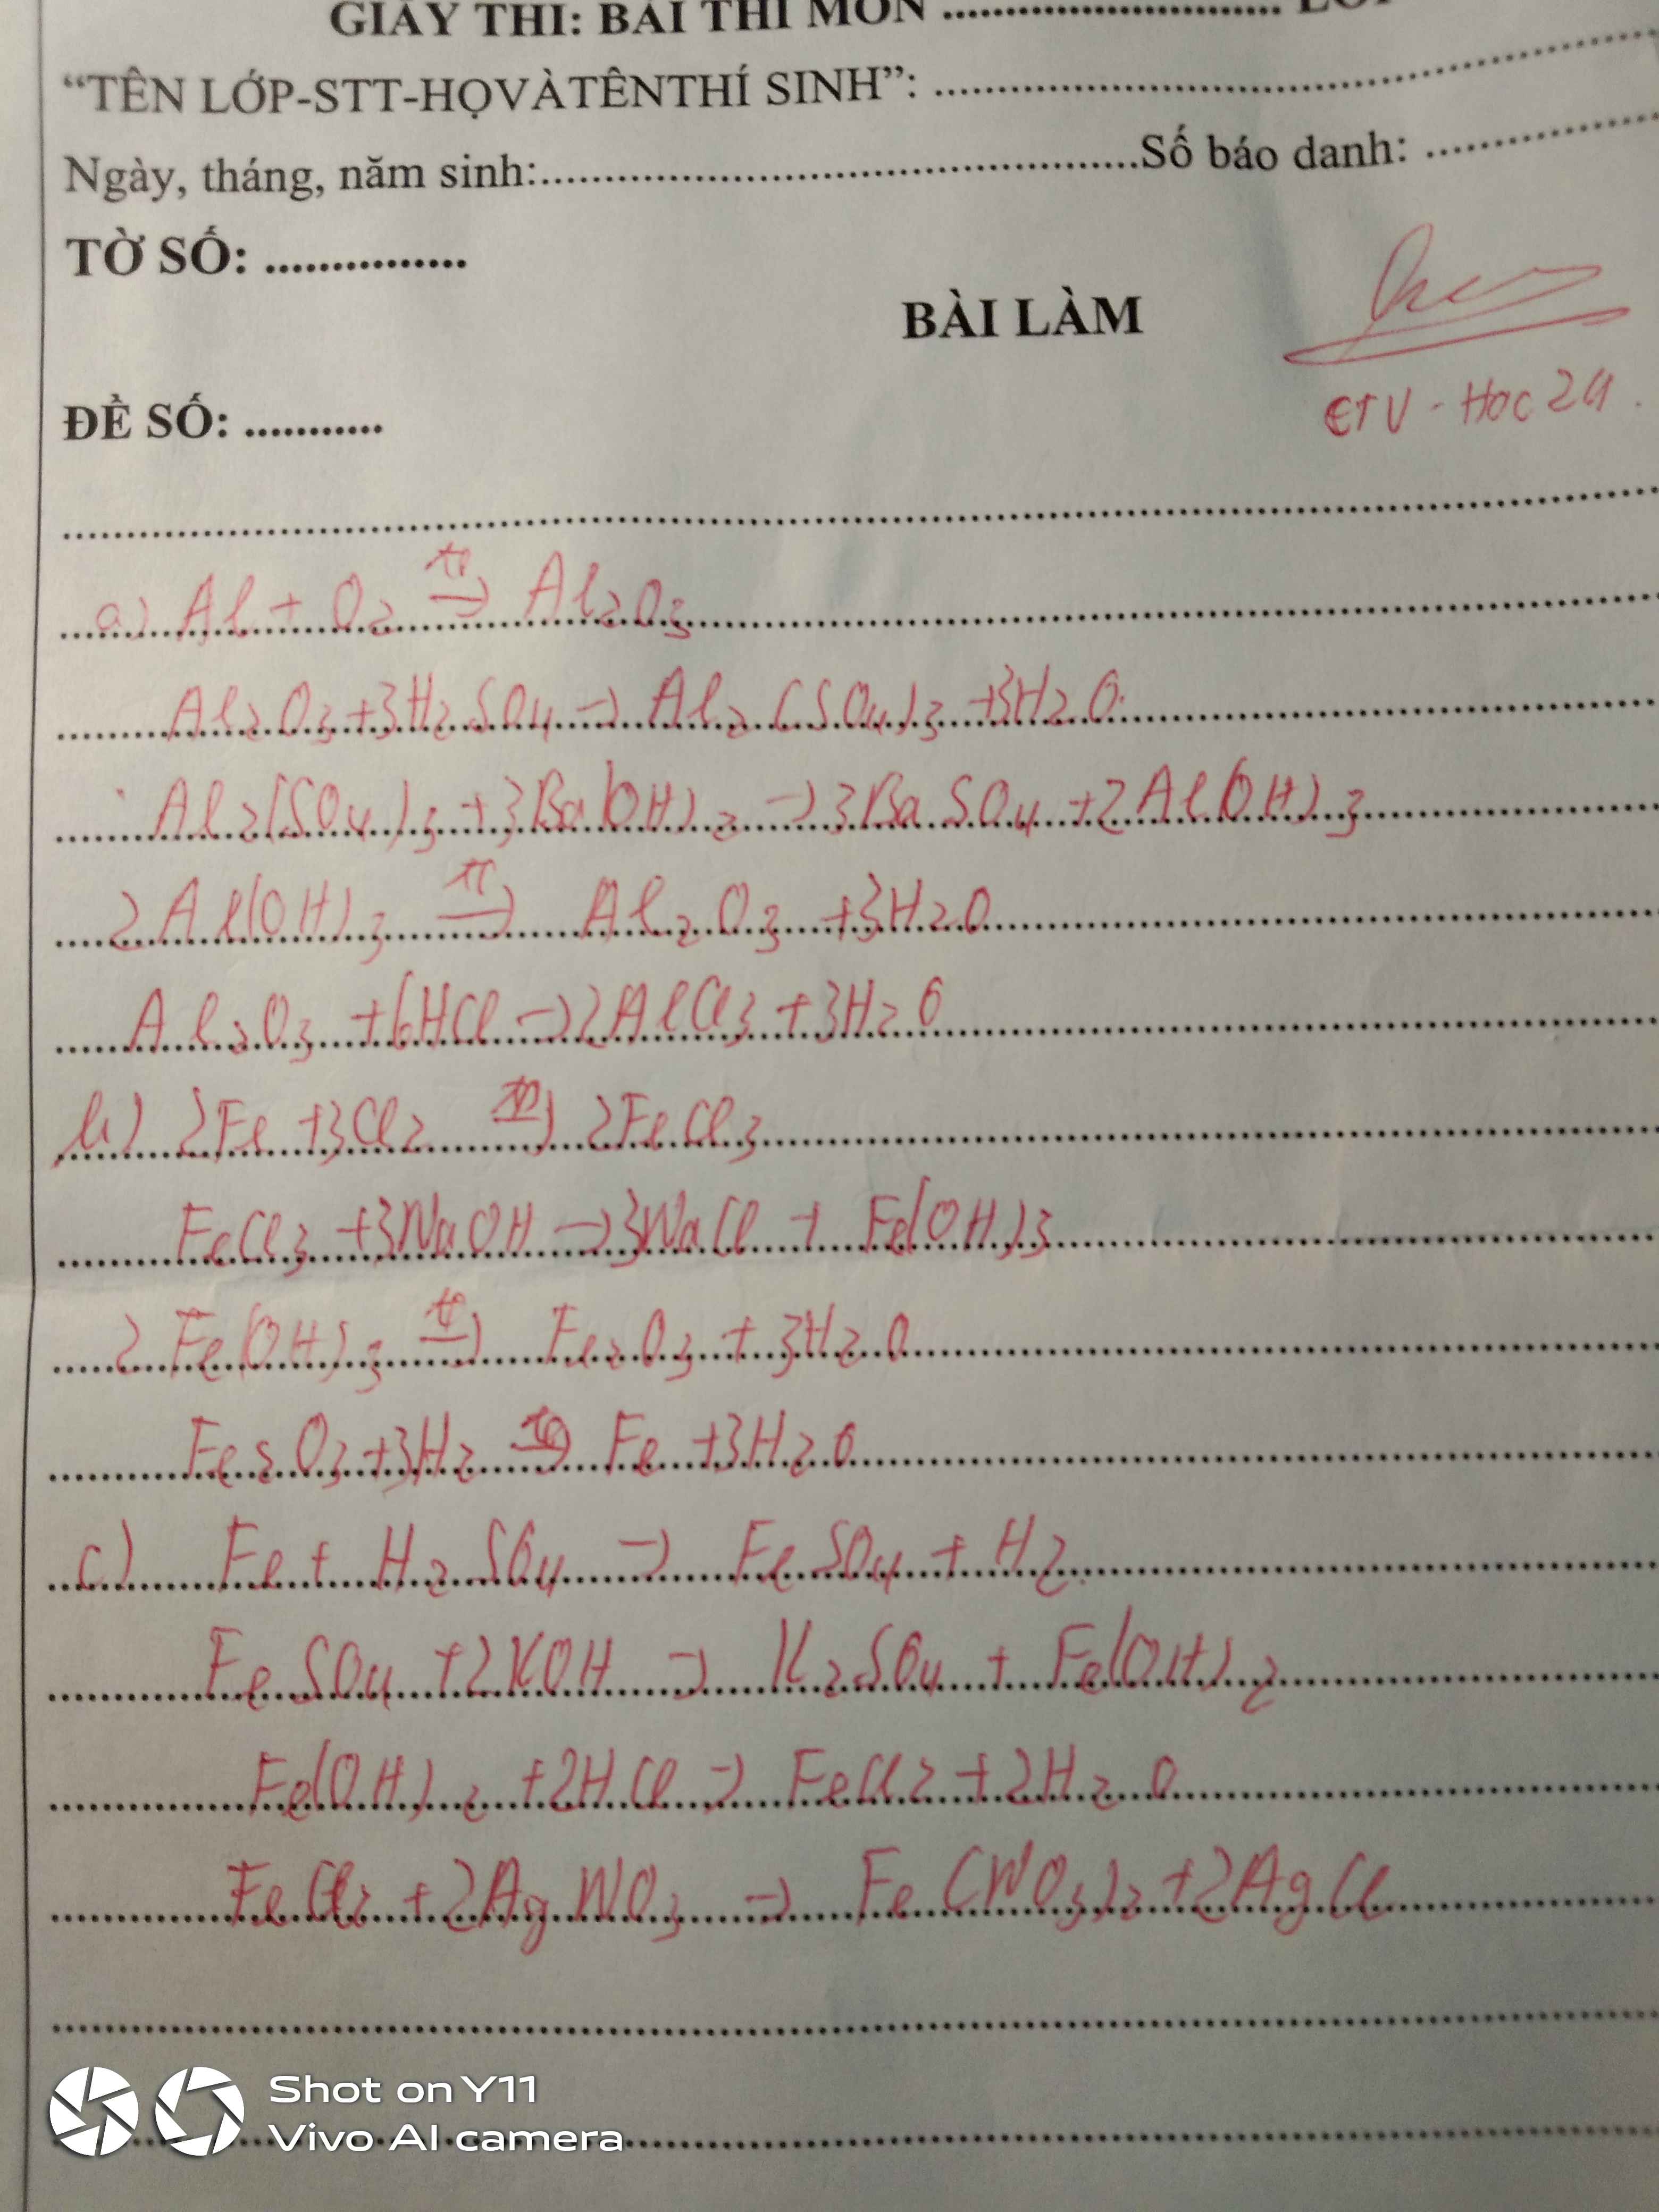 GIẤY THI: BÀI THI MÔN ........................... LỚP
“TÊN LỚP-STT-HỌVÀTÊNTHÍ SINH”: ...........................
Ngày, tháng, năm sinh:...........................Số báo danh: ...............
TỜ SỐ: ...............
BÀI LÀM
CTV - Hoc 24
ĐỀ SỐ: ...........
a) Al + O2 t°→ Al2O3
Al2O3 + 3H2SO4 → Al2(SO4)3 + 3H2O
Al2(SO4)3 + 3Ba(OH)2 → 3BaSO4 + 2Al(OH)3
2Al(OH)3 t°→ Al2O3 + 3H2O
Al2O3 + 6HCl → 2AlCl3 + 3H2O
b) 2Fe + 3Cl2 t°→ 2FeCl3
FeCl3 + 3NaOH → 3NaCl + Fe(OH)3
2Fe(OH)3 t°→ Fe2O3 + 3H2O
Fe2O3 + 3H2 t°→ Fe + 3H2O
c) Fe + H2SO4 → FeSO4 + H2
FeSO4 + 2KOH → K2SO4 + Fe(OH)2
Fe(OH)2 + 2HCl → FeCl2 + 2H2O
FeCl2 + 2AgNO3 → Fe(NO3)2 + 2AgCl
Shot on Y11
Vivo AI camera